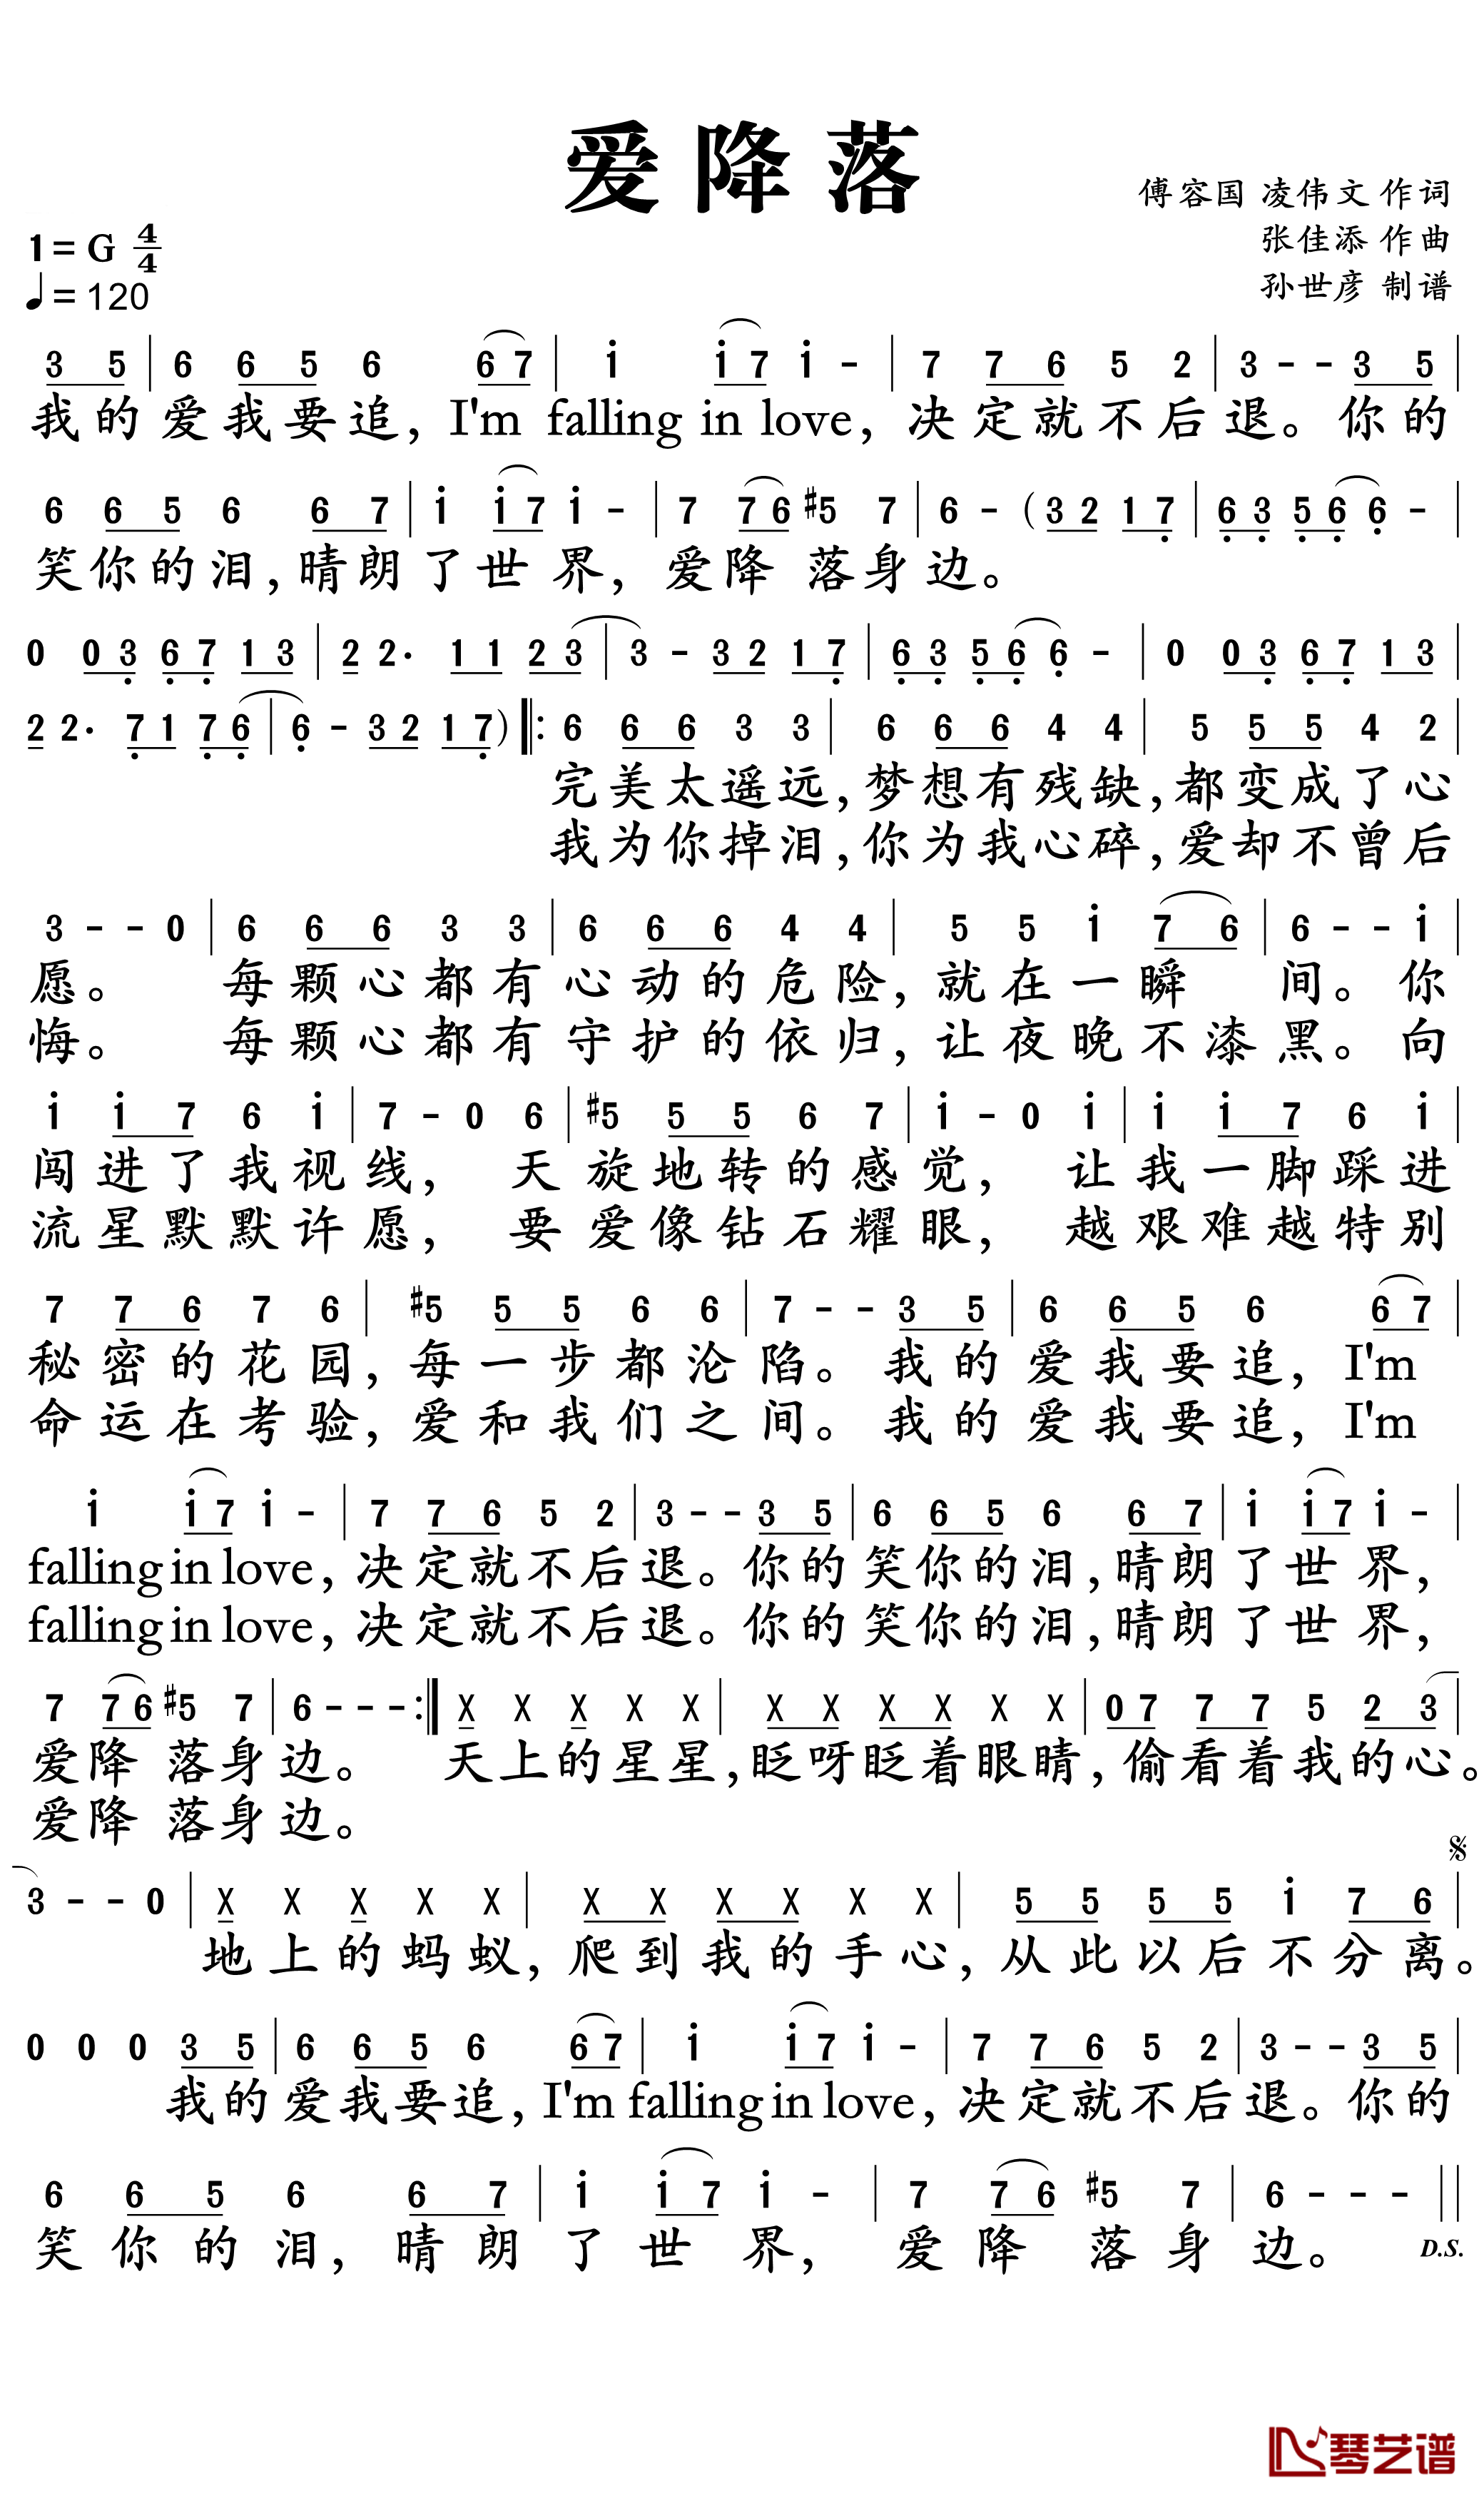 爱降落
傅容国 凌伟文 作词
张佳添 作曲
孙世彦 制谱
1=G 4/4
♩=120
3 5 | 6 6 5 6 6 7 | i i 7 i - | 7 7 6 5 2 | 3 - - 3 5 |
我的爱我要追, I'm falling in love, 决定就不后退。你的
6 6 5 6 6 7 | i i 7 i - | 7 7 6 #5 7 | 6 - (3 2 1 7̣ | 6̣ 3̣ 5̣ 6̣ 6̣ - |
笑你的泪,晴朗了世界, 爱降落身边。
0 0 3̣ 6̣ 7̣ 1 3 | 2 2. 1 1 2 3 | 3 - 3 2 1 7̣ | 6̣ 3̣ 5̣ 6̣ 6̣ - | 0 0 3̣ 6̣ 7̣ 1 3 |
2 2. 7̣ 1 7̣ 6̣ | 6̣ - 3 2 1 7̣) ‖: 6 6 6 3 3 | 6 6 6 4 4 | 5 5 5 4 2 |
完美太遥远,梦想有残缺,都变成了心
我为你掉泪,你为我心碎,爱却不曾后
3 - - 0 | 6 6 6 3 3 | 6 6 6 4 4 | 5 5 i 7 6 | 6 - - i |
愿。 每颗心都有心动的危险,就在一瞬间。你
悔。 每颗心都有守护的依归,让夜晚不漆黑。向
i i 7 6 i | 7 - 0 6 | #5 5 5 6 7 | i - 0 i | i i 7 6 i |
闯进了我视线, 天旋地转的感觉, 让我一脚踩进
流星默默许愿, 要爱像钻石耀眼, 越艰难越特别
7 7 6 7 6 | #5 5 5 6 6 | 7 - - 3 5 | 6 6 5 6 6 7 |
秘密的花园,每一步都沦陷。我的爱我要追, I'm
命运在考验,爱和我们之间。我的爱我要追, I'm
i i 7 i - | 7 7 6 5 2 | 3 - - 3 5 | 6 6 5 6 6 7 | i i 7 i - |
falling in love, 决定就不后退。你的笑你的泪,晴朗了世界,
falling in love, 决定就不后退。你的笑你的泪,晴朗了世界,
7 7 6 #5 7 | 6 - - - :‖ X X X X X | X X X X X X | 0 7 7 7 5 2 3 |
爱降落身边。 天上的星星,眨呀眨着眼睛,偷看着我的心。
爱降落身边。
𝄋
3 - - 0 | X X X X X | X X X X X X | 5 5 5 5 i 7 6 |
地上的蚂蚁,爬到我的手心,从此以后不分离。
0 0 0 3 5 | 6 6 5 6 6 7 | i i 7 i - | 7 7 6 5 2 | 3 - - 3 5 |
我的爱我要追, I'm falling in love, 决定就不后退。你的
6 6 5 6 6 7 | i i 7 i - | 7 7 6 #5 7 | 6 - - - ‖
笑你的泪,晴朗了世界, 爱降落身边。 D.S.
琴艺谱